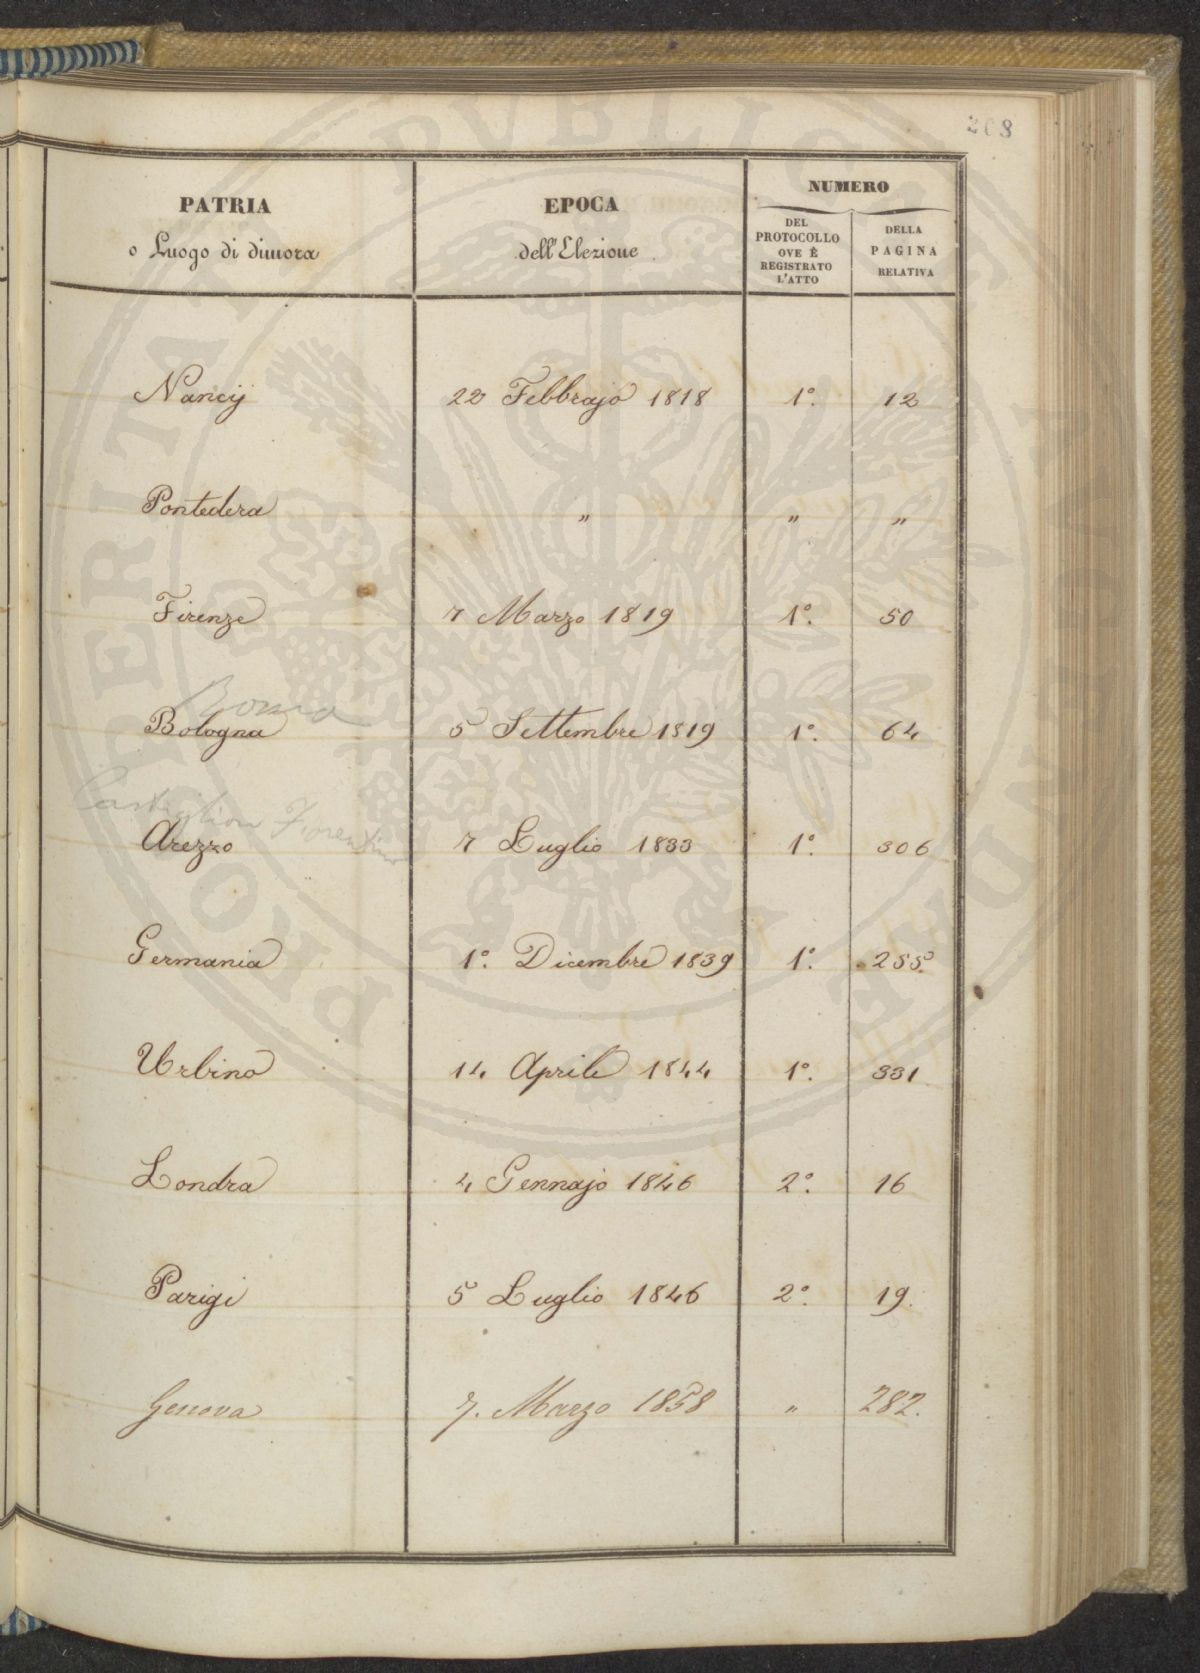 208
PATRIA
o Luogo di dimora
EPOCA
dell'Elezione
NUMERO
DEL
PROTOCOLLO
OVE È
REGISTRATO
L'ATTO
DELLA
PAGINA
RELATIVA
Nancij 22 Febbrajo 1818 1º. 12
Pontedera " " "
Firenze 7 Marzo 1819 1º. 50
Roma
Bologna 5 Settembre 1819 1º. 64
Castiglion Fiorentino
Arezzo 7 Luglio 1833 1º. 306
Germania 1º. Dicembre 1839 1º. 255.
Urbino 14 Aprile 1844 1º. 331
Londra 4 Gennajo 1846 2º. 16
Parigi 5 Luglio 1846 2º. 19.
Genova 7. Marzo 1858 " 282.